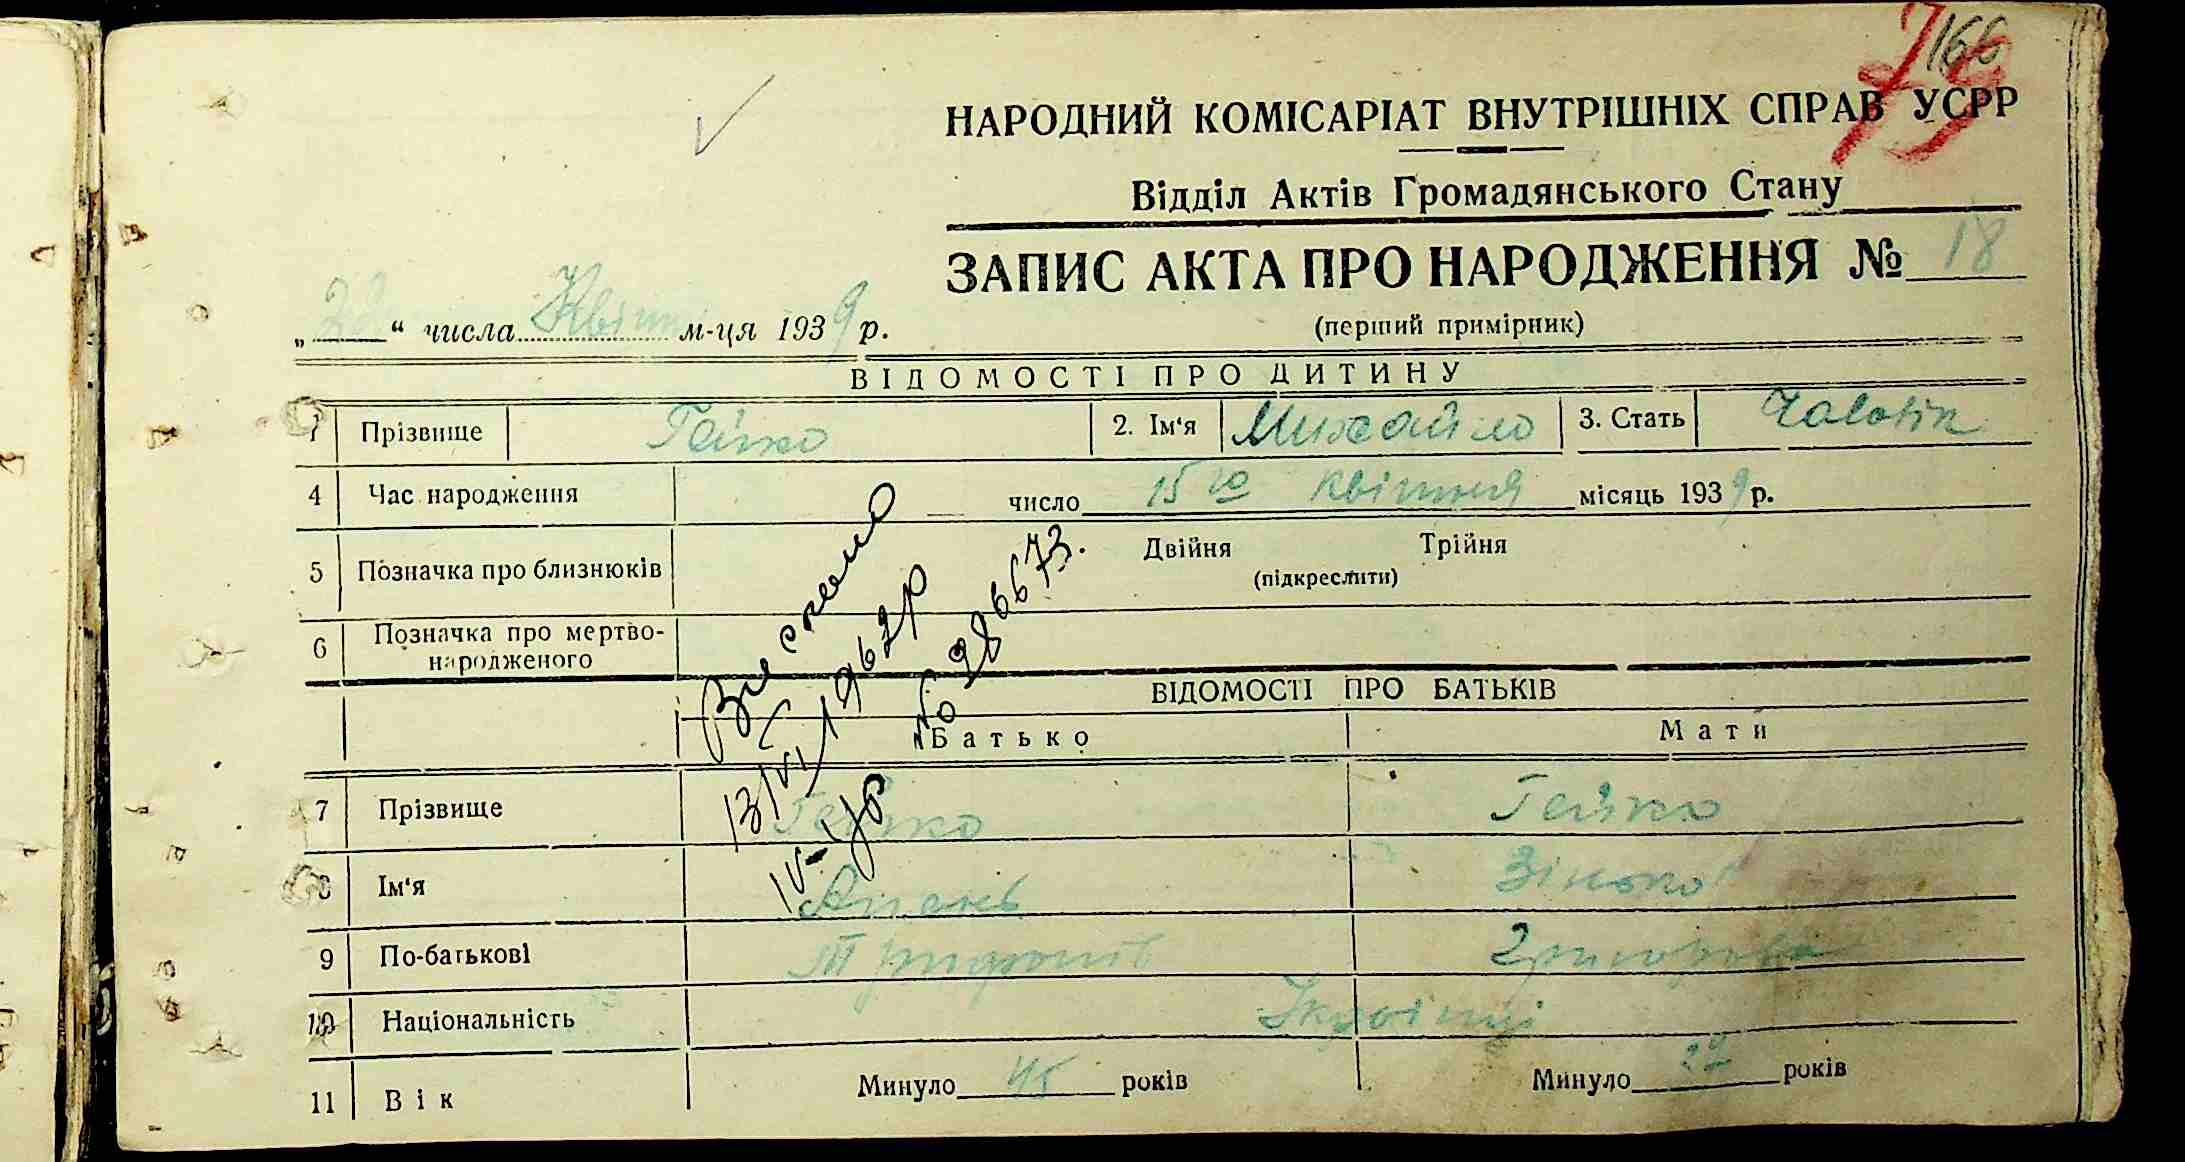 166
НАРОДНИЙ КОМІСАРІАТ ВНУТРІШНІХ СПРАВ УСРР
Відділ Актів Громадянського Стану
ЗАПИС АКТА ПРО НАРОДЖЕННЯ № 18
(перший примірник)
„ “ числа Квітня м-ця 1939 р.
ВІДОМОСТІ ПРО ДИТИНУ
1 Прізвище Гейко 2. Ім‘я Михайло 3. Стать Чоловік
4 Час народження число 15го квітня місяць 1939 р.
5 Позначка про близнюків Двійня Трійня
(підкреслити)
6 Позначка про мертво-
народженого
13/VI 1962р
№ 286673.
IV-УР
ВІДОМОСТІ ПРО БАТЬКІВ
Батько Мати
7 Прізвище Гейко Гейко
8 Ім‘я Зінька
9 По-батькові Григорівна
10 Національність Українці
11 Вік Минуло 45 років Минуло років